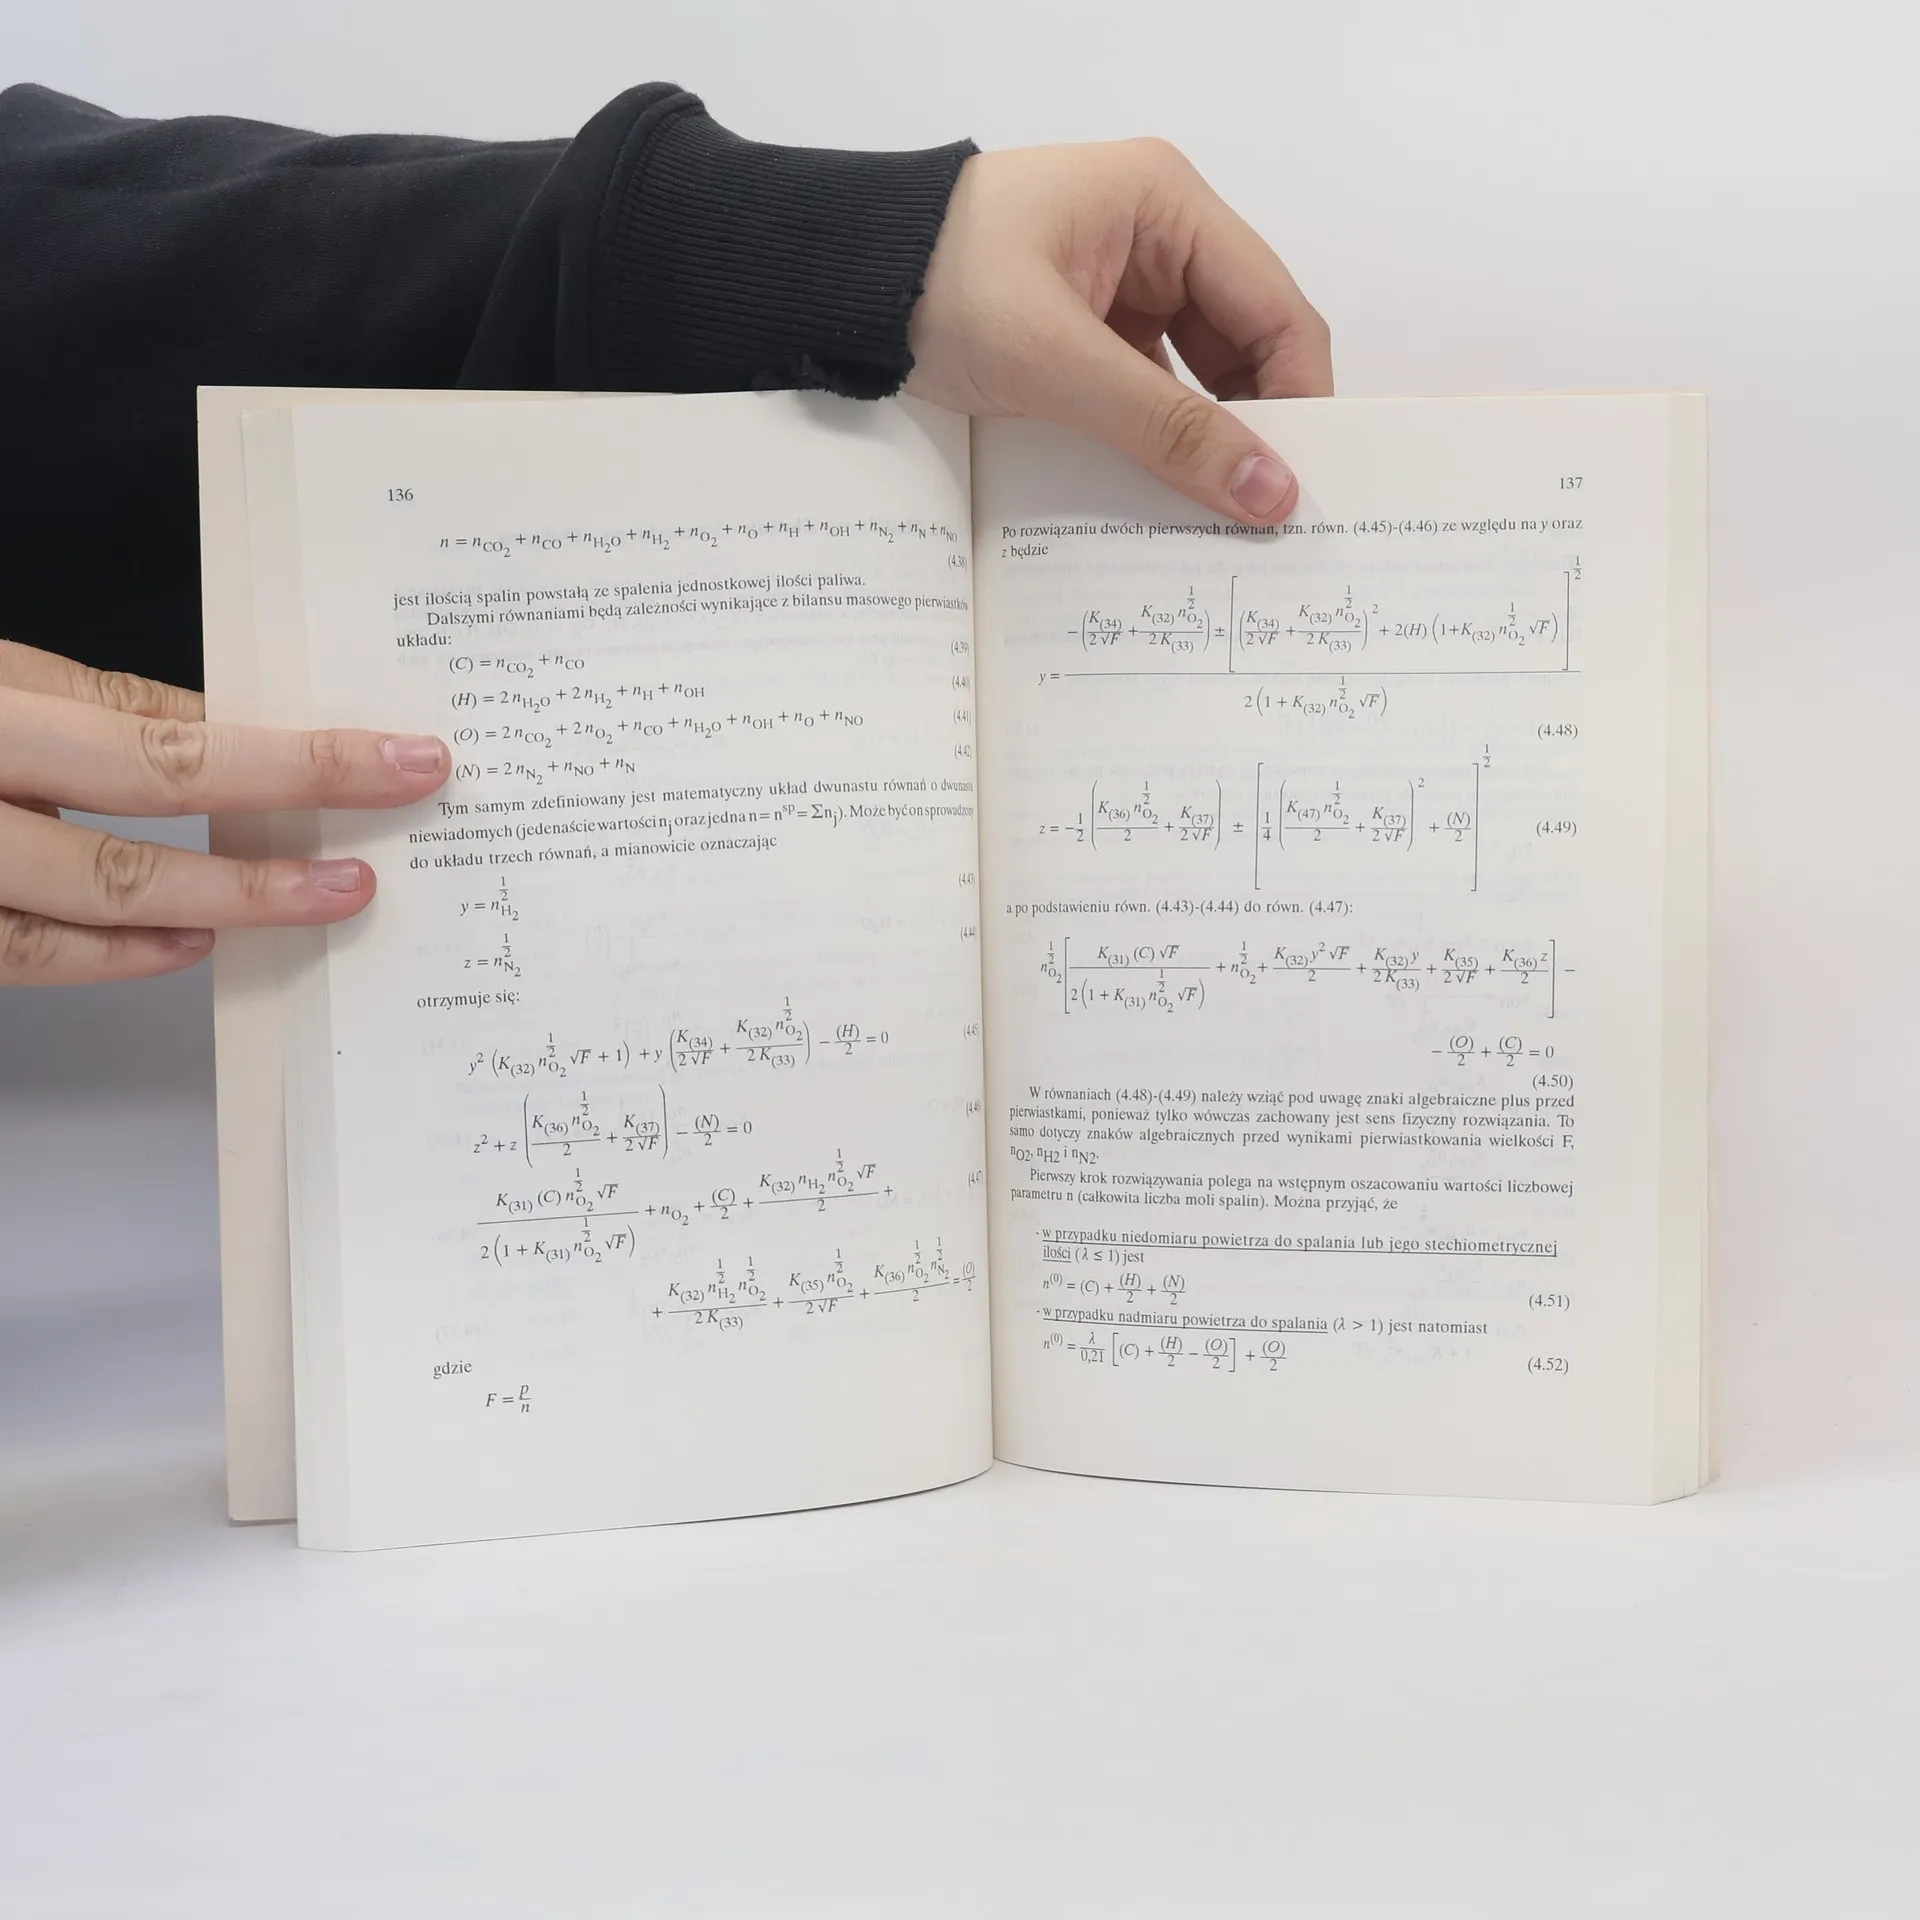 136
n = n_CO₂ + n_CO + n_H₂O + n_H₂ + n_O₂ + n_O + n_H + n_OH + n_N₂ + n_N + n_NO
(4.38)
jest ilością spalin powstałą ze spalenia jednostkowej ilości paliwa.
Dalszymi równaniami będą zależności wynikające z bilansu masowego pierwiastków
układu:
(C) = n_CO₂ + n_CO (4.39)
(H) = 2 n_H₂O + 2 n_H₂ + n_H + n_OH (4.40)
(O) = 2 n_CO₂ + 2 n_O₂ + n_CO + n_H₂O + n_OH + n_O + n_NO (4.41)
(N) = 2 n_N₂ + n_NO + n_N (4.42)
Tym samym zdefiniowany jest matematyczny układ dwunastu równań o dwunastu
niewiadomych (jedenaście wartości n_j oraz jedna n = n^sp = Σn_j). Może być on sprowadzony
do układu trzech równań, a mianowicie oznaczając
y = n_H₂^(1/2) (4.43)
z = n_N₂^(1/2) (4.44)
otrzymuje się:
y² (K_(32) n_O₂^(1/2) √F + 1) + y (K_(34)/(2 √F) + K_(32) n_O₂^(1/2)/(2 K_(33))) − (H)/2 = 0 (4.45)
z² + z (K_(36) n_O₂^(1/2)/2 + K_(37)/(2 √F)) − (N)/2 = 0 (4.46)
K_(31) (C) n_O₂^(1/2) √F / (2 (1 + K_(31) n_O₂^(1/2) √F)) + n_O₂ + (C)/2 + K_(32) n_H₂ n_O₂^(1/2) √F/2 + (4.47)
+ K_(32) n_H₂^(1/2) n_O₂^(1/2)/(2 K_(33)) + K_(35) n_O₂^(1/2)/(2 √F) + K_(36) n_O₂^(1/2) n_N₂^(1/2)/2 = (O)/2
gdzie
F = p/n
137
Po rozwiązaniu dwóch pierwszych równań, tzn. równ. (4.45)-(4.46) ze względu na y oraz
z będzie
y = [−(K_(34)/(2 √F) + K_(32) n_O₂^(1/2)/(2 K_(33))) ± [(K_(34)/(2 √F) + K_(32) n_O₂^(1/2)/(2 K_(33)))² + 2(H) (1+K_(32) n_O₂^(1/2) √F)]^(1/2)] / (2 (1 + K_(32) n_O₂^(1/2) √F))
(4.48)
z = −1/2 (K_(36) n_O₂^(1/2)/2 + K_(37)/(2 √F)) ± [1/4 (K_(47) n_O₂^(1/2)/2 + K_(37)/(2 √F))² + (N)/2]^(1/2) (4.49)
a po podstawieniu równ. (4.43)-(4.44) do równ. (4.47):
n_O₂^(1/2) [K_(31) (C) √F / (2 (1 + K_(31) n_O₂^(1/2) √F)) + n_O₂^(1/2) + K_(32) y² √F/2 + K_(32) y/(2 K_(33)) + K_(35)/(2 √F) + K_(36) z/2] −
− (O)/2 + (C)/2 = 0
(4.50)
W równaniach (4.48)-(4.49) należy wziąć pod uwagę znaki algebraiczne plus przed
pierwiastkami, ponieważ tylko wówczas zachowany jest sens fizyczny rozwiązania. To
samo dotyczy znaków algebraicznych przed wynikami pierwiastkowania wielkości F,
n_O2, n_H2 i n_N2.
Pierwszy krok rozwiązywania polega na wstępnym oszacowaniu wartości liczbowej
parametru n (całkowita liczba moli spalin). Można przyjąć, że
- w przypadku niedomiaru powietrza do spalania lub jego stechiometrycznej
ilości (λ ≤ 1) jest
n^(0) = (C) + (H)/2 + (N)/2 (4.51)
- w przypadku nadmiaru powietrza do spalania (λ > 1) jest natomiast
n^(0) = λ/0,21 [(C) + (H)/2 − (O)/2] + (O)/2 (4.52)